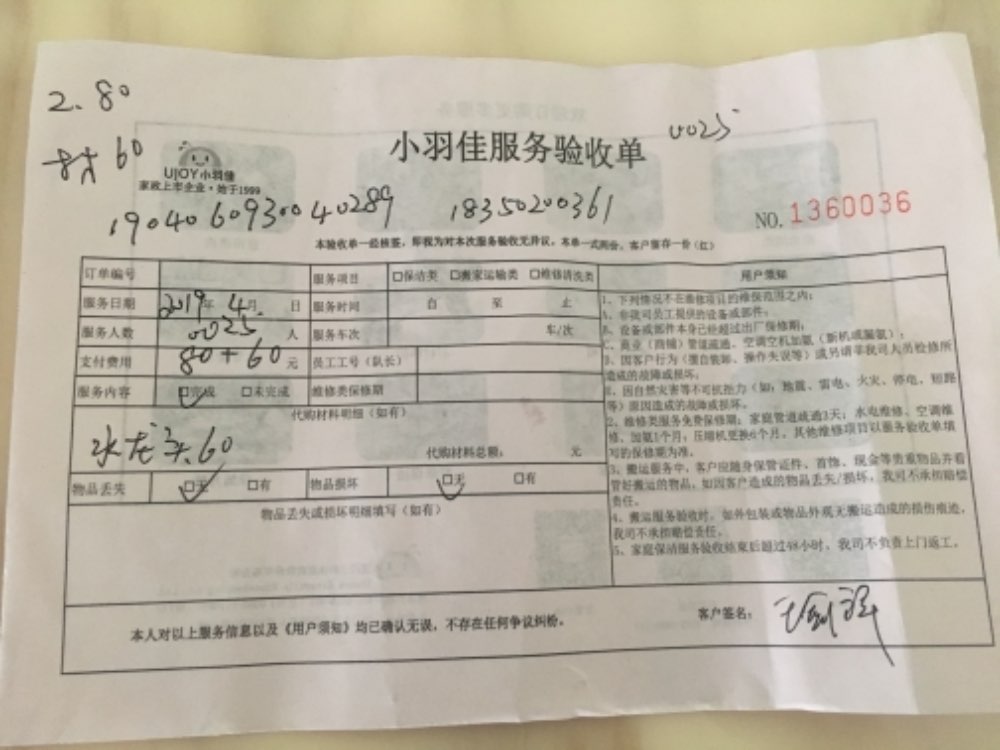 2.80
60
0025
小羽佳服务验收单
UJOY小羽佳
家政上市企业·始于1999
1904060930040289 18350200361
NO. 1360036
本验收单一经核签,即视为对本次服务验收无异议,本单一式两份,客户留存一份(红)
订单编号 服务项目 □保洁类 □搬家运输类 □维修清洗类
服务日期 2019年 4月 日 服务时间 自 至 止
服务人数 0025 人 服务车次 车/次
支付费用 80+60 元 员工工号(队长)
服务内容 □完成 □未完成 维修类保修期
代购材料明细(如有)
水龙头.60
代购材料总额: 元
物品丢失 □无 □有 物品损坏 □无 □有
物品丢失或损坏明细填写(如有)
用户须知
1、下列情况不在维修项目的维保范围之内:
A、非我司员工提供的设备或部件;
B、设备或部件本身已经超过出厂保修期;
C、商业(商铺)管道疏通、空调空机加氨(新机或漏氨);
D、因客户行为(擅自装卸、操作失误等)或另请非我司人员检修所
造成的故障或损坏;
E、因自然灾害等不可抗拒力(如:地震、雷电、火灾、停电、短路
等)原因造成的故障或损坏。
2、维修类服务免费保修期:家庭管道疏通3天;水电维修、空调维
修、加氨1个月;压缩机更换6个月。其他维修项目以服务验收单填
写的保修期为准。
3、搬运服务中,客户应随身保管证件、首饰、现金等贵重物品并看
管好搬运的物品,如因客户造成的物品丢失/损坏,我司不承担赔偿
责任。
4、搬运服务验收时,如外包装或物品外观无搬运造成的损伤痕迹,
我司不承担赔偿责任。
5、家庭保洁服务验收结束后超过48小时,我司不负责上门返工。
本人对以上服务信息以及《用户须知》均已确认无误,不存在任何争议纠纷。
客户签名: